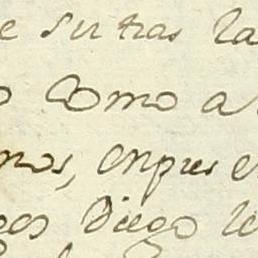 e Su tras la
o Como a
nos, enpues e
gos Diego le